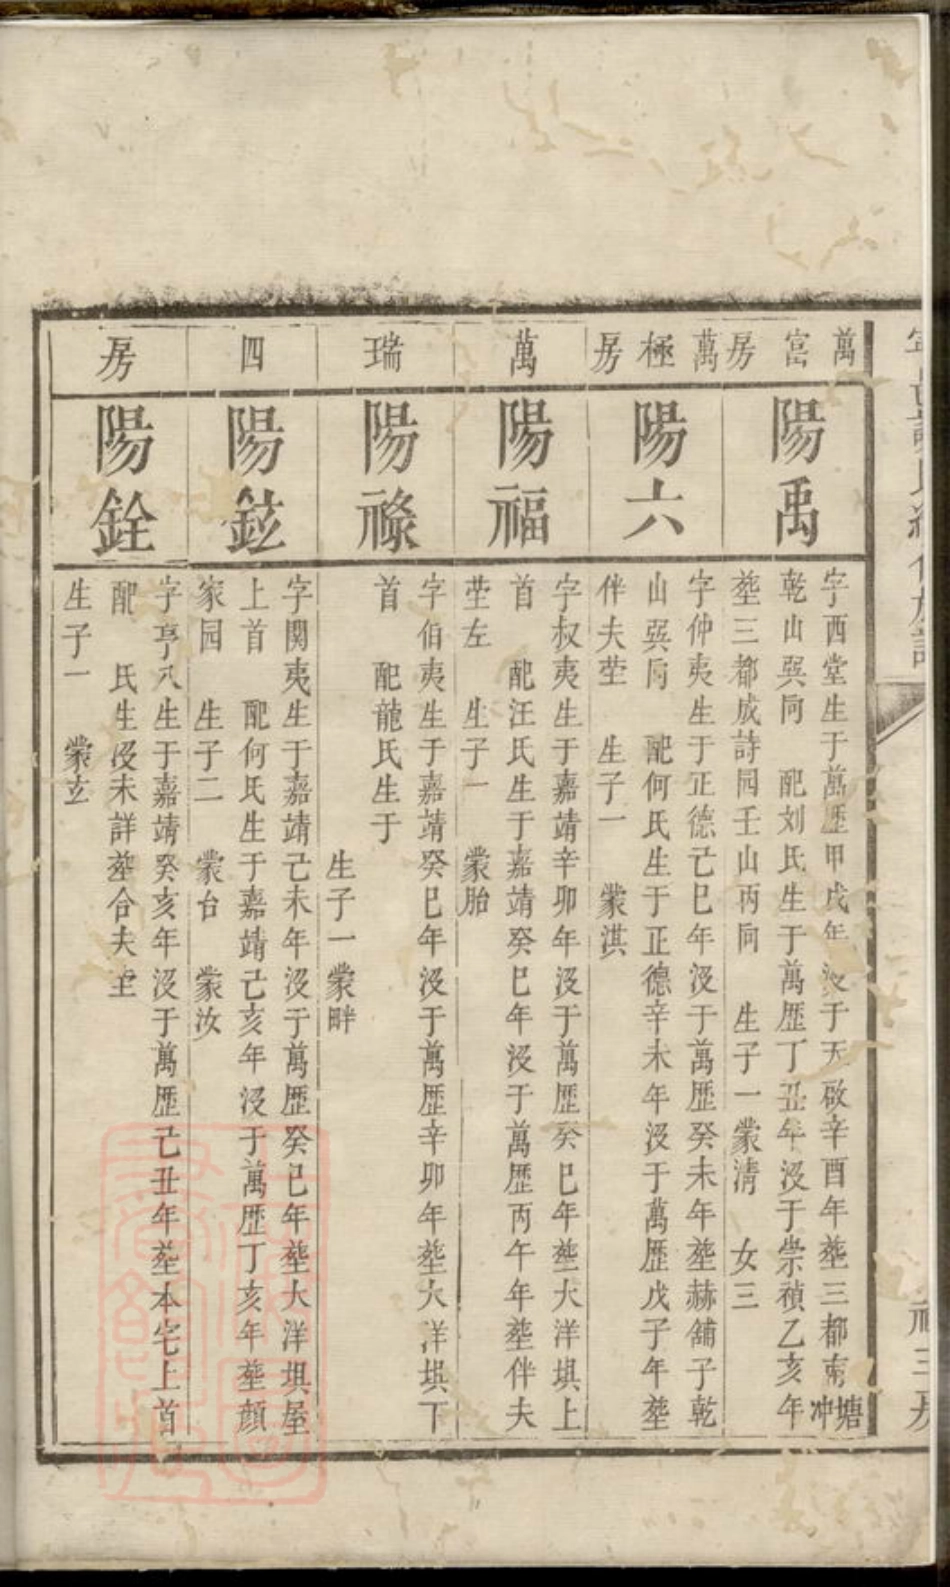 萬富房
陽禹
字西堂生于萬歷甲戌年没于天啟辛酉年塟三都南塘冲
乾山巽向 配刘氏生于萬歷丁丑年没于崇禎乙亥年
塟三都成詩园壬山丙向 生子一蒙清 女三
萬極房
陽六
字仲夷生于正德己巳年没于萬歷癸未年塟赫舖子乾
山巽向 配何氏生于正德辛未年没于萬歷戊子年塟
伴夫茔 生子一 蒙淇
萬
陽福
字叔夷生于嘉靖辛卯年没于萬歷癸巳年塟大洋垻上
首 配汪氏生于嘉靖癸巳年没于萬歷丙午年塟伴夫
茔左 生子一 蒙胎
瑞
陽祿
字伯夷生于嘉靖癸巳年没于萬歷辛卯年塟大洋垻下
首 配龍氏生于
生子一蒙畔
四
陽鉉
字関夷生于嘉靖己未年没于萬歷癸巳年塟大洋垻屋
上首 配何氏生于嘉靖己亥年没于萬歷丁亥年塟顔
家园 生子二 蒙台 蒙汝
房
陽銓
字亨八生于嘉靖癸亥年没于萬歷己丑年塟本宅上首
配 氏生没未詳塟合夫茔
生子一 蒙玄